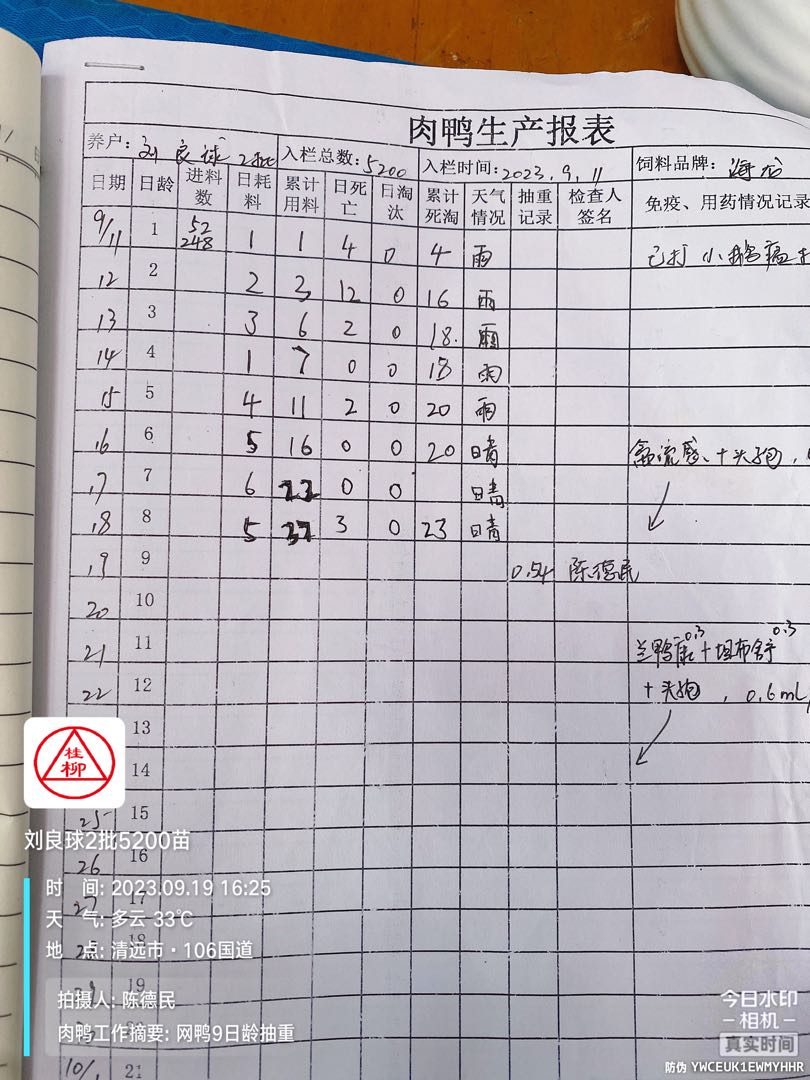 肉鸭生产报表
养户: 刘良球 2批 入栏总数: 5200 入栏时间: 2023.9.11 饲料品牌: 海龙
日期 日龄 进料数 日耗料 累计用料 日死亡 日淘汰 累计死淘 天气情况 抽重记录 检查人签名 免疫、用药情况记录
9/11 1 52 248 1 1 4 0 4 雨 已打小鹅瘟
12 2 2 3 12 0 16 雨
13 3 3 6 2 0 18. 雨
14 4 1 7 0 0 18 雨
15 5 4 11 2 0 20 雨
16 6 5 16 0 0 20 晴 禽流感、+头孢,
17 7 6 22 0 0 晴
18 8 5 37 3 0 23 晴
19 9 0.54 陈德民
20 10
21 11 兰鸭康0.3+坦布舒0.3
22 12 +头孢, 0.6mL/
13
14
25 15
26 16
27 17
18
19
10/1 21
桂柳
刘良球2批5200苗
时 间: 2023.09.19 16:25
天 气: 多云 33℃
地 点: 清远市·106国道
拍摄人: 陈德民
肉鸭工作摘要: 网鸭9日龄抽重
今日水印
-相机-
真实时间
防伪 YWCEUK1EWMYHHR